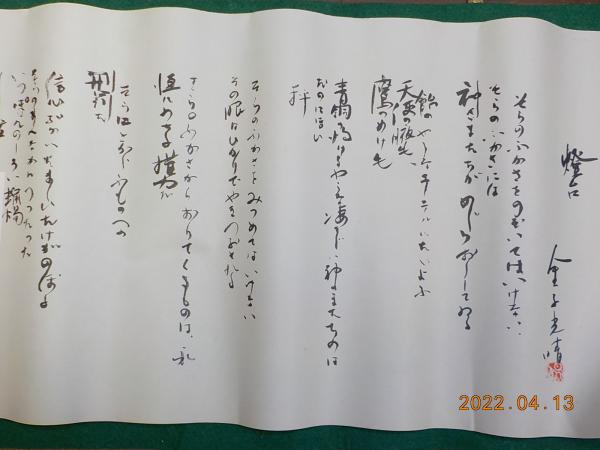 燈台
金子光晴
そらのふかさをのぞいてはいけない。
そらのふかさには
神さまたちがめじろおししてゐる
飴のやうなエーテルにただよふ
天使の腋毛
鷹のぬけ毛
青銅の灼けるやうな凄じい神さまたちのは
だのにほひ
秤
そらのふかさをみつめてはいけない
その眼はひかりでやきつぶされる
そらのふかさからおりてくるものは、永
劫にわたる権力だ
そらにさからふものへの
刑罰だ
信心ふかいたましひだけがのぼる
そらのまんなかにつったった
いっぽんのしろい蝋燭
2022.04.13